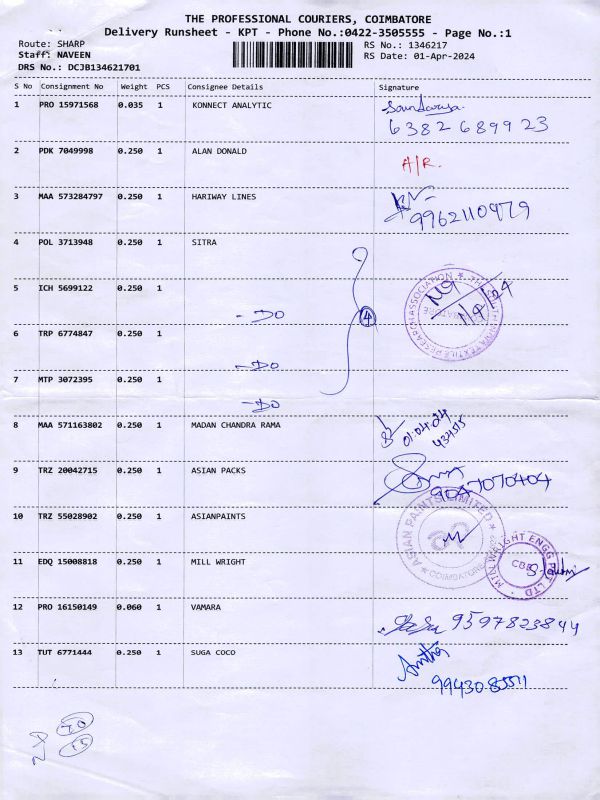 THE PROFESSIONAL COURIERS, COIMBATORE
Delivery Runsheet - KPT - Phone No.:0422-3505555 - Page No.:1
Route: SHARP
RS No.: 1346217
Staff: NAVEEN
RS Date: 01-Apr-2024
DRS No.: DCJB134621701
S No Consignment No Weight PCS Consignee Details Signature
1 PRO 15971568 0.035 1 KONNECT ANALYTIC
6382689923
2 PDK 7049998 0.250 1 ALAN DONALD A/R.
3 MAA 573284797 0.250 1 HARIWAY LINES
9962110979
4 POL 3713948 0.250 1 SITRA
5 ICH 5699122 0.250 1
- DO
4
6 TRP 6774847 0.250 1
- DO
7 MTP 3072395 0.250 1
- DO
8 MAA 571163802 0.250 1 MADAN CHANDRA RAMA
01.04.24
9 TRZ 20042715 0.250 1 ASIAN PACKS
10 TRZ 55028902 0.250 1 ASIANPAINTS
ASIAN PAINTS LIMITED
COIMBATORE
11 EDQ 15008818 0.250 1 MILL WRIGHT
MILL WRIGHT ENGG PVT LTD
CBE
12 PRO 16150149 0.060 1 VAMARA
9597823844
13 TUT 6771444 0.250 1 SUGA COCO